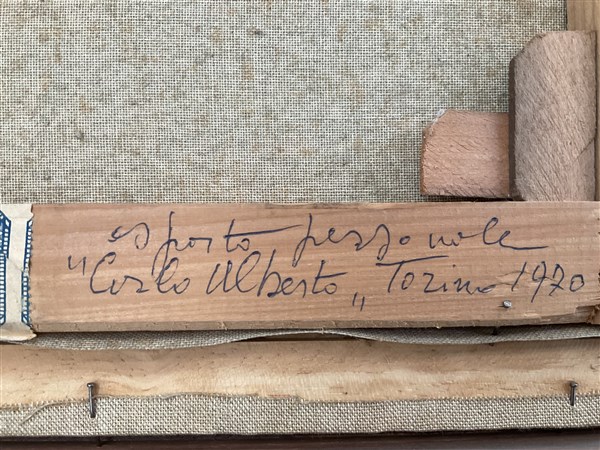 esposto personale
"Carlo Alberto" Torino 1970